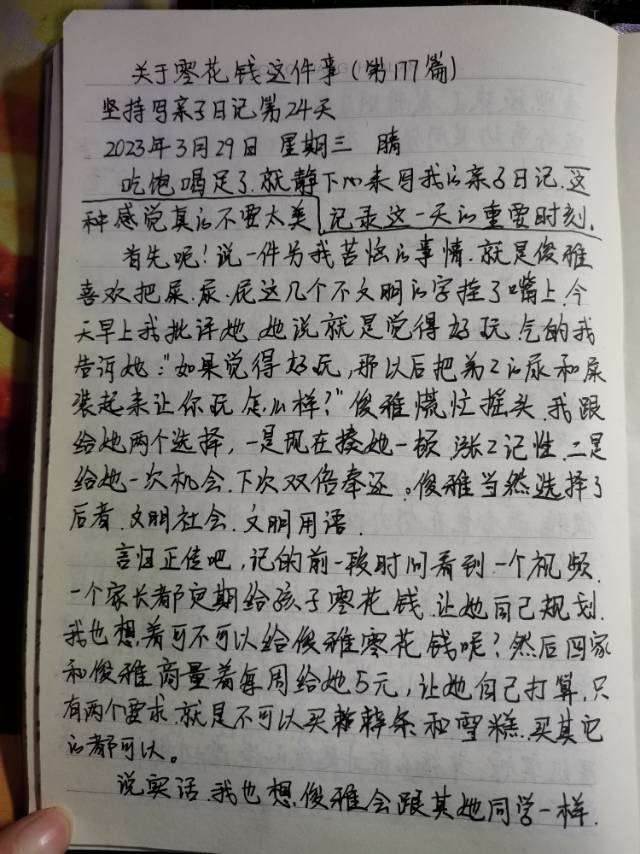 关于零花钱这件事(第177篇)
坚持写亲子日记第24天
2023年3月29日 星期三 晴
吃饱喝足了.就静下心来写我的亲子日记.这
种感觉真的不要太美,记录这一天的重要时刻.
首先呢!说一件为我苦恼的事情.就是俊雅
喜欢把屎.尿.屁这几个不文明的字挂了嘴上.今
天早上我批评她.她说就是觉得好玩.气的我
告诉她:"如果觉得好玩,那以后把弟弟的尿和屎
装起来让你玩怎么样?"俊雅慌忙摇头.我跟
给她两个选择,一是现在揍她一顿.涨涨记性.二是
给她一次机会.下次双倍奉还。俊雅当然选择了
后者.文明社会.文明用语.
言归正传吧,记的前一段时间看到一个视频.
一个家长都定期给孩子零花钱.让她自己规划.
我也想着可不可以给俊雅零花钱呢?然后回家
和俊雅商量着每周给她5元,让她自己打算.只
有两个要求.就是不可以买辣辣条和雪糕.买其它
的都可以。
说实话.我也想.俊雅会跟其她同学一样.